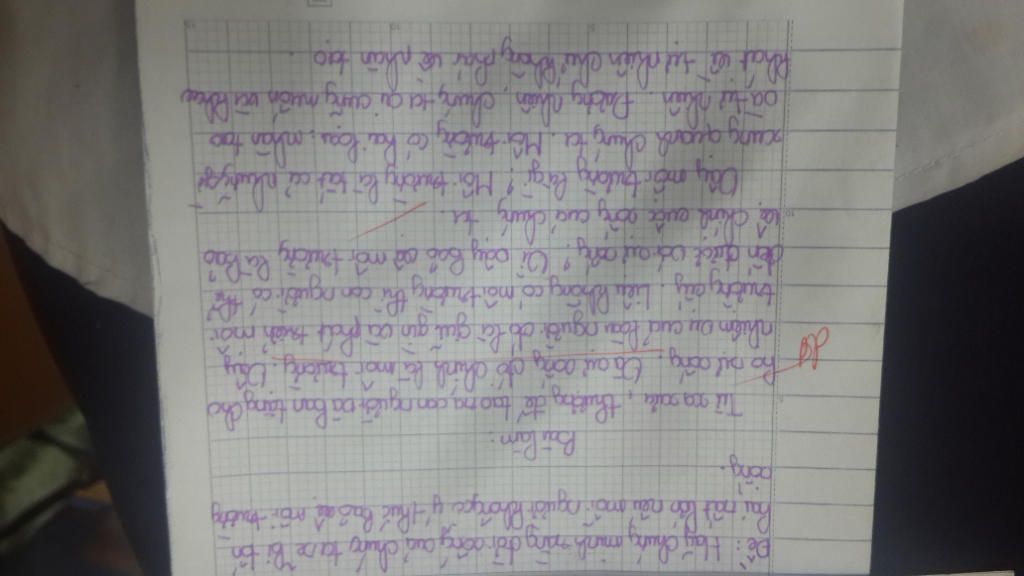 Đề: Hãy chứng minh rằng đời sống của chúng ta sẽ bị tổn
hại rất lớn nếu mỗi người không có ý thức bảo vệ môi trường
sống.
Bài làm:
Từ xa xưa, thượng đế tạo ra con người và ban tặng cho
họ sự sống. Và sự sống đó chính là môi trường. Vậy
nhiệm vụ của loài người đó là giữ gìn và phát triển môi
trường ấy. Liệu không có môi trường thì con người có thể
đến được với sự sống? Vì vậy bảo vệ môi trường là bảo
vệ chính cuộc sống của chúng ta.
Vậy môi trường là gì? Môi trường là tất cả những gì
xung quanh chúng ta. Môi trường có hai loại: nhân tạo
và tự nhiên. Đương nhiên, chúng ta ai cũng muốn và khao
khát về tự nhiên chứ không phải về nhân tạo.